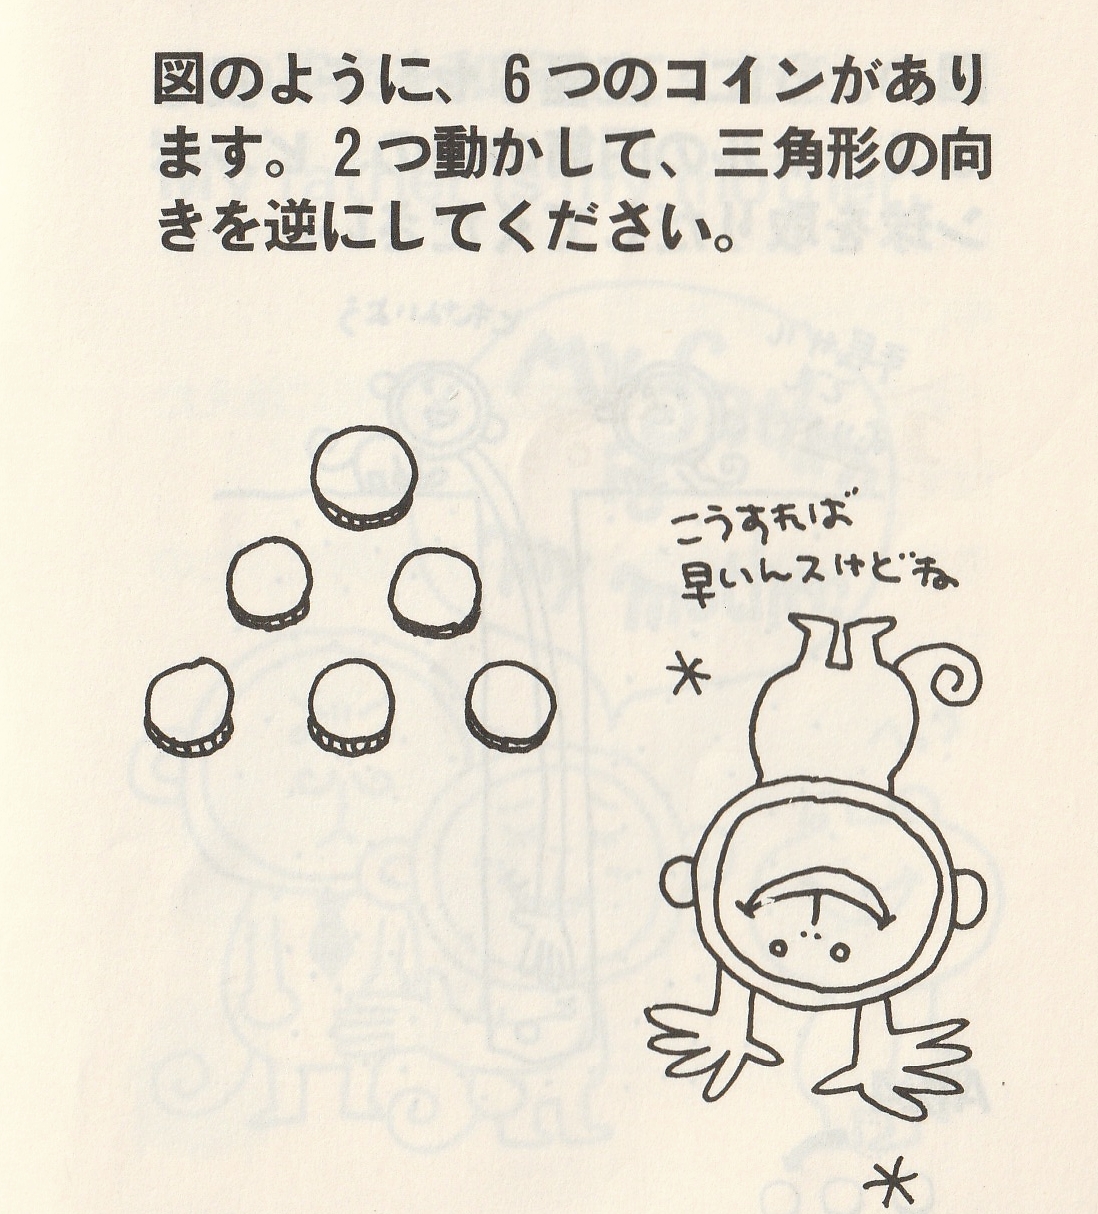 図のように、6つのコインがあり
ます。2つ動かして、三角形の向
きを逆にしてください。
こうすれば
早いんスけどね